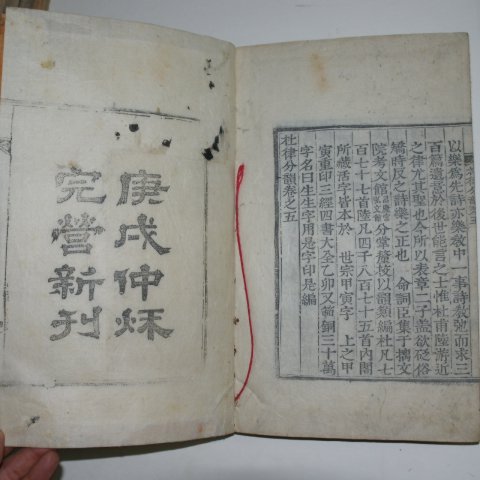 以樂爲先詩亦樂敎中一事詩敎弛而求三
百篇遺意於後世能言之士惟杜甫陸游近
之律尤其聖也今所以表章二子蓋欲砭俗
矯時反之詩樂之正也 命詞臣集于摛文
院考文館分掌釐校以韻類編杜凡七
百七十七首陸凡四千八百七十五首內閣
所藏活字皆本於 世宗甲寅字 上之甲
寅重印三經四書大全乙卯又範銅三十萬
字名曰生生字用是字印是編
杜律分韻卷之五
庚戌仲秌
完營新刊